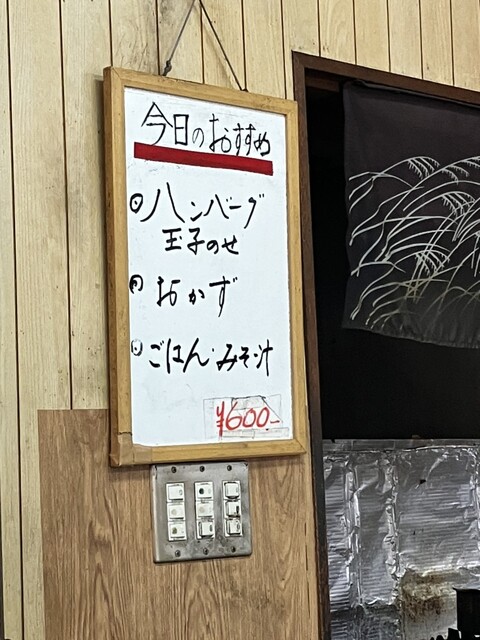 今日のおすすめ
ハンバーグ
玉子のせ
おかず
ごはん・みそ汁
¥600-